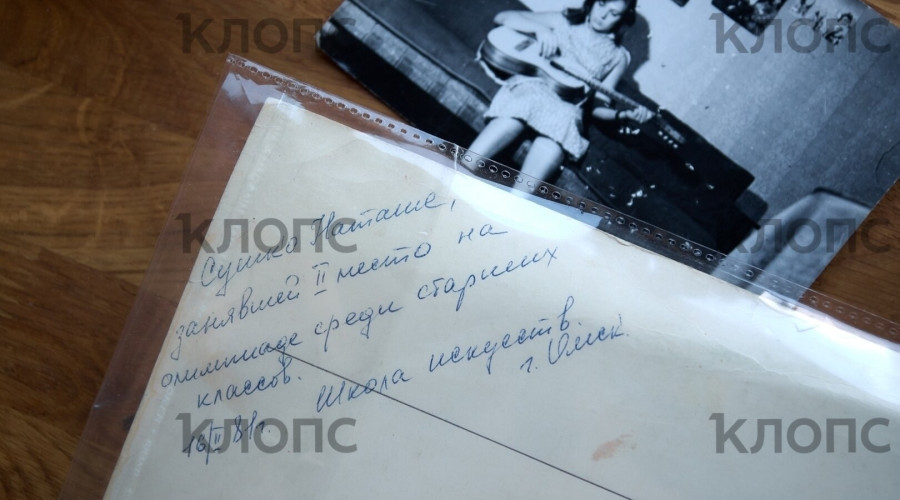 Сушко Наташе,
занявшей II место на
олимпиаде среди старших
классов.
Школа искусств.
г. Омск.
16/II 81г.
клопс
клопс
клопс
клопс
клопс
клопс